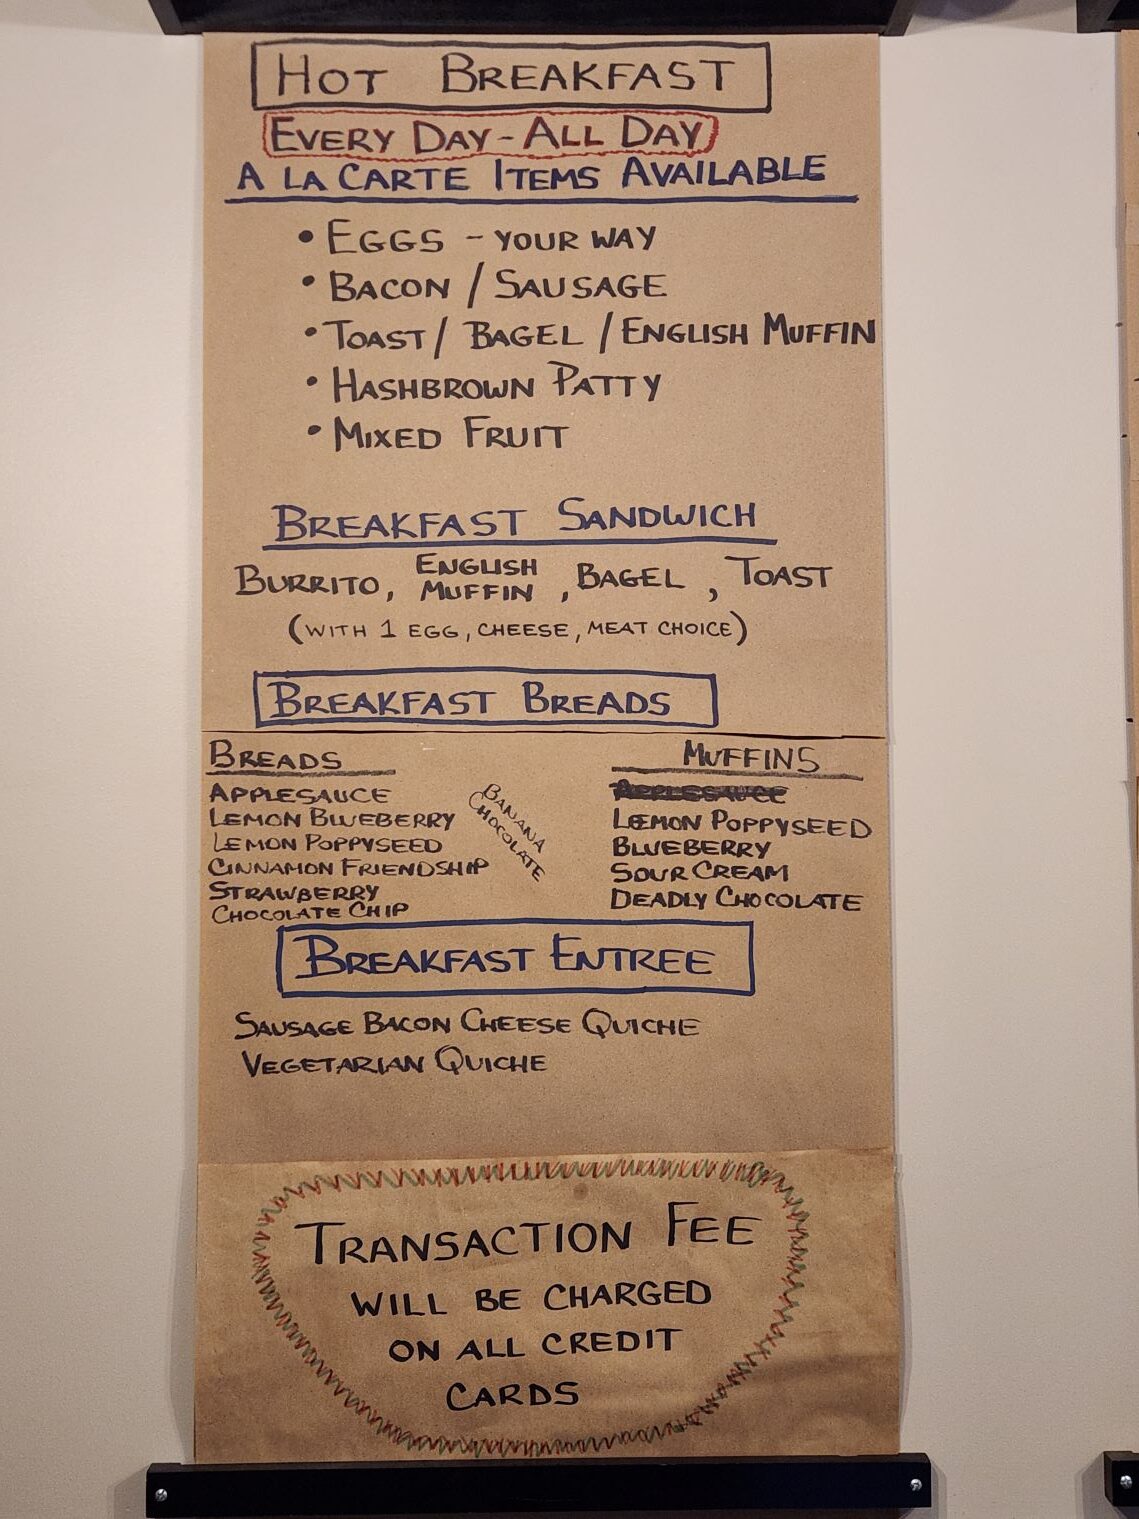 HOT BREAKFAST
EVERY DAY - ALL DAY
A LA CARTE ITEMS AVAILABLE
• EGGS - YOUR WAY
• BACON / SAUSAGE
• TOAST / BAGEL / ENGLISH MUFFIN
• HASHBROWN PATTY
• MIXED FRUIT
BREAKFAST SANDWICH
BURRITO, ENGLISH MUFFIN, BAGEL, TOAST
(WITH 1 EGG, CHEESE, MEAT CHOICE)
BREAKFAST BREADS
BREADS
APPLESAUCE
LEMON BLUEBERRY
LEMON POPPYSEED
CINNAMON FRIENDSHIP
STRAWBERRY
CHOCOLATE CHIP
BANANA
CHOCOLATE
MUFFINS
APPLESAUCE
LEMON POPPYSEED
BLUEBERRY
SOUR CREAM
DEADLY CHOCOLATE
BREAKFAST ENTREE
SAUSAGE BACON CHEESE QUICHE
VEGETARIAN QUICHE
TRANSACTION FEE
WILL BE CHARGED
ON ALL CREDIT
CARDS